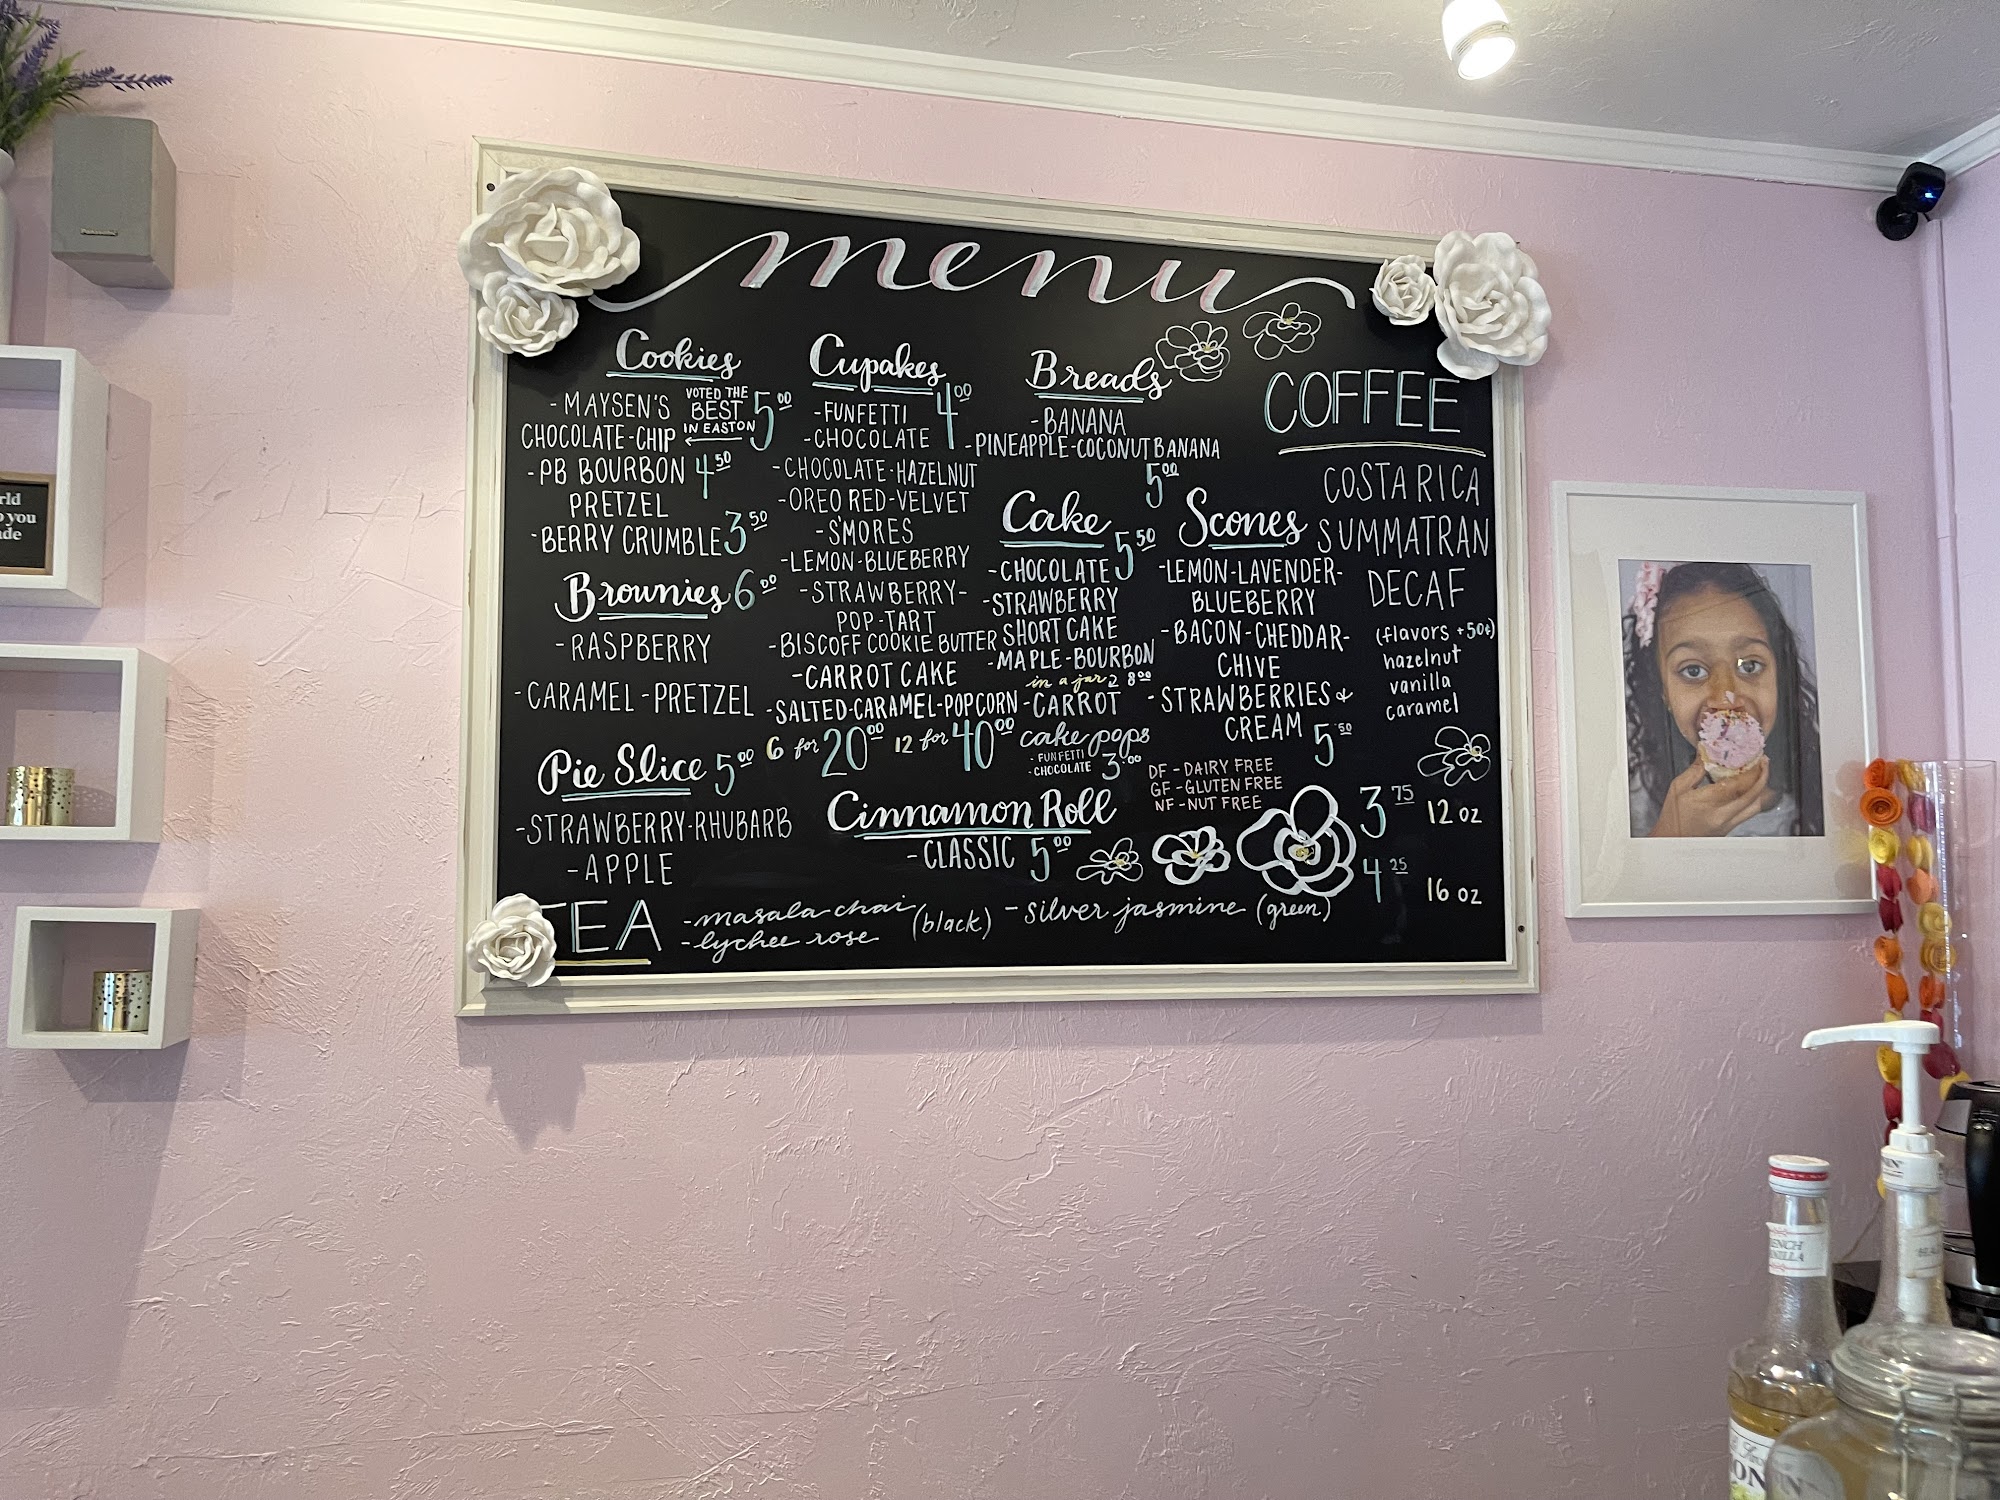 menu
Cookies
-MAYSEN'S
CHOCOLATE-CHIP
VOTED THE
BEST
IN EASTON
5.00
-PB BOURBON 4.50
PRETZEL
-BERRY CRUMBLE 3.50
Brownies 6.00
-RASPBERRY
-CARAMEL-PRETZEL
Pie Slice 5.00
-STRAWBERRY-RHUBARB
-APPLE
Cupakes 4.00
-FUNFETTI
-CHOCOLATE
-CHOCOLATE-HAZELNUT
-OREO RED-VELVET
-S'MORES
-LEMON-BLUEBERRY
-STRAWBERRY-
POP-TART
-BISCOFF COOKIE BUTTER
-CARROT CAKE
-SALTED-CARAMEL-POPCORN
6 for 20.00 12 for 40.00
Breads
-BANANA
-PINEAPPLE-COCONUT BANANA
5.00
Cake 5.50
-CHOCOLATE
-STRAWBERRY
SHORT CAKE
-MAPLE-BOURBON
in a jar 8.00
-CARROT
cake pops
-FUNFETTI
-CHOCOLATE 3.00
Scones
-LEMON-LAVENDER-
BLUEBERRY
-BACON-CHEDDAR-
CHIVE
-STRAWBERRIES &
CREAM 5.50
DF - DAIRY FREE
GF - GLUTEN FREE
NF - NUT FREE
Cinnamon Roll
-CLASSIC 5.00
COFFEE
COSTA RICA
SUMMATRAN
DECAF
(flavors +50¢)
hazelnut
vanilla
caramel
3.75 12 oz
4.25 16 oz
TEA
-masala chai
-lychee rose
(black)
-silver jasmine (green)
Panasonic